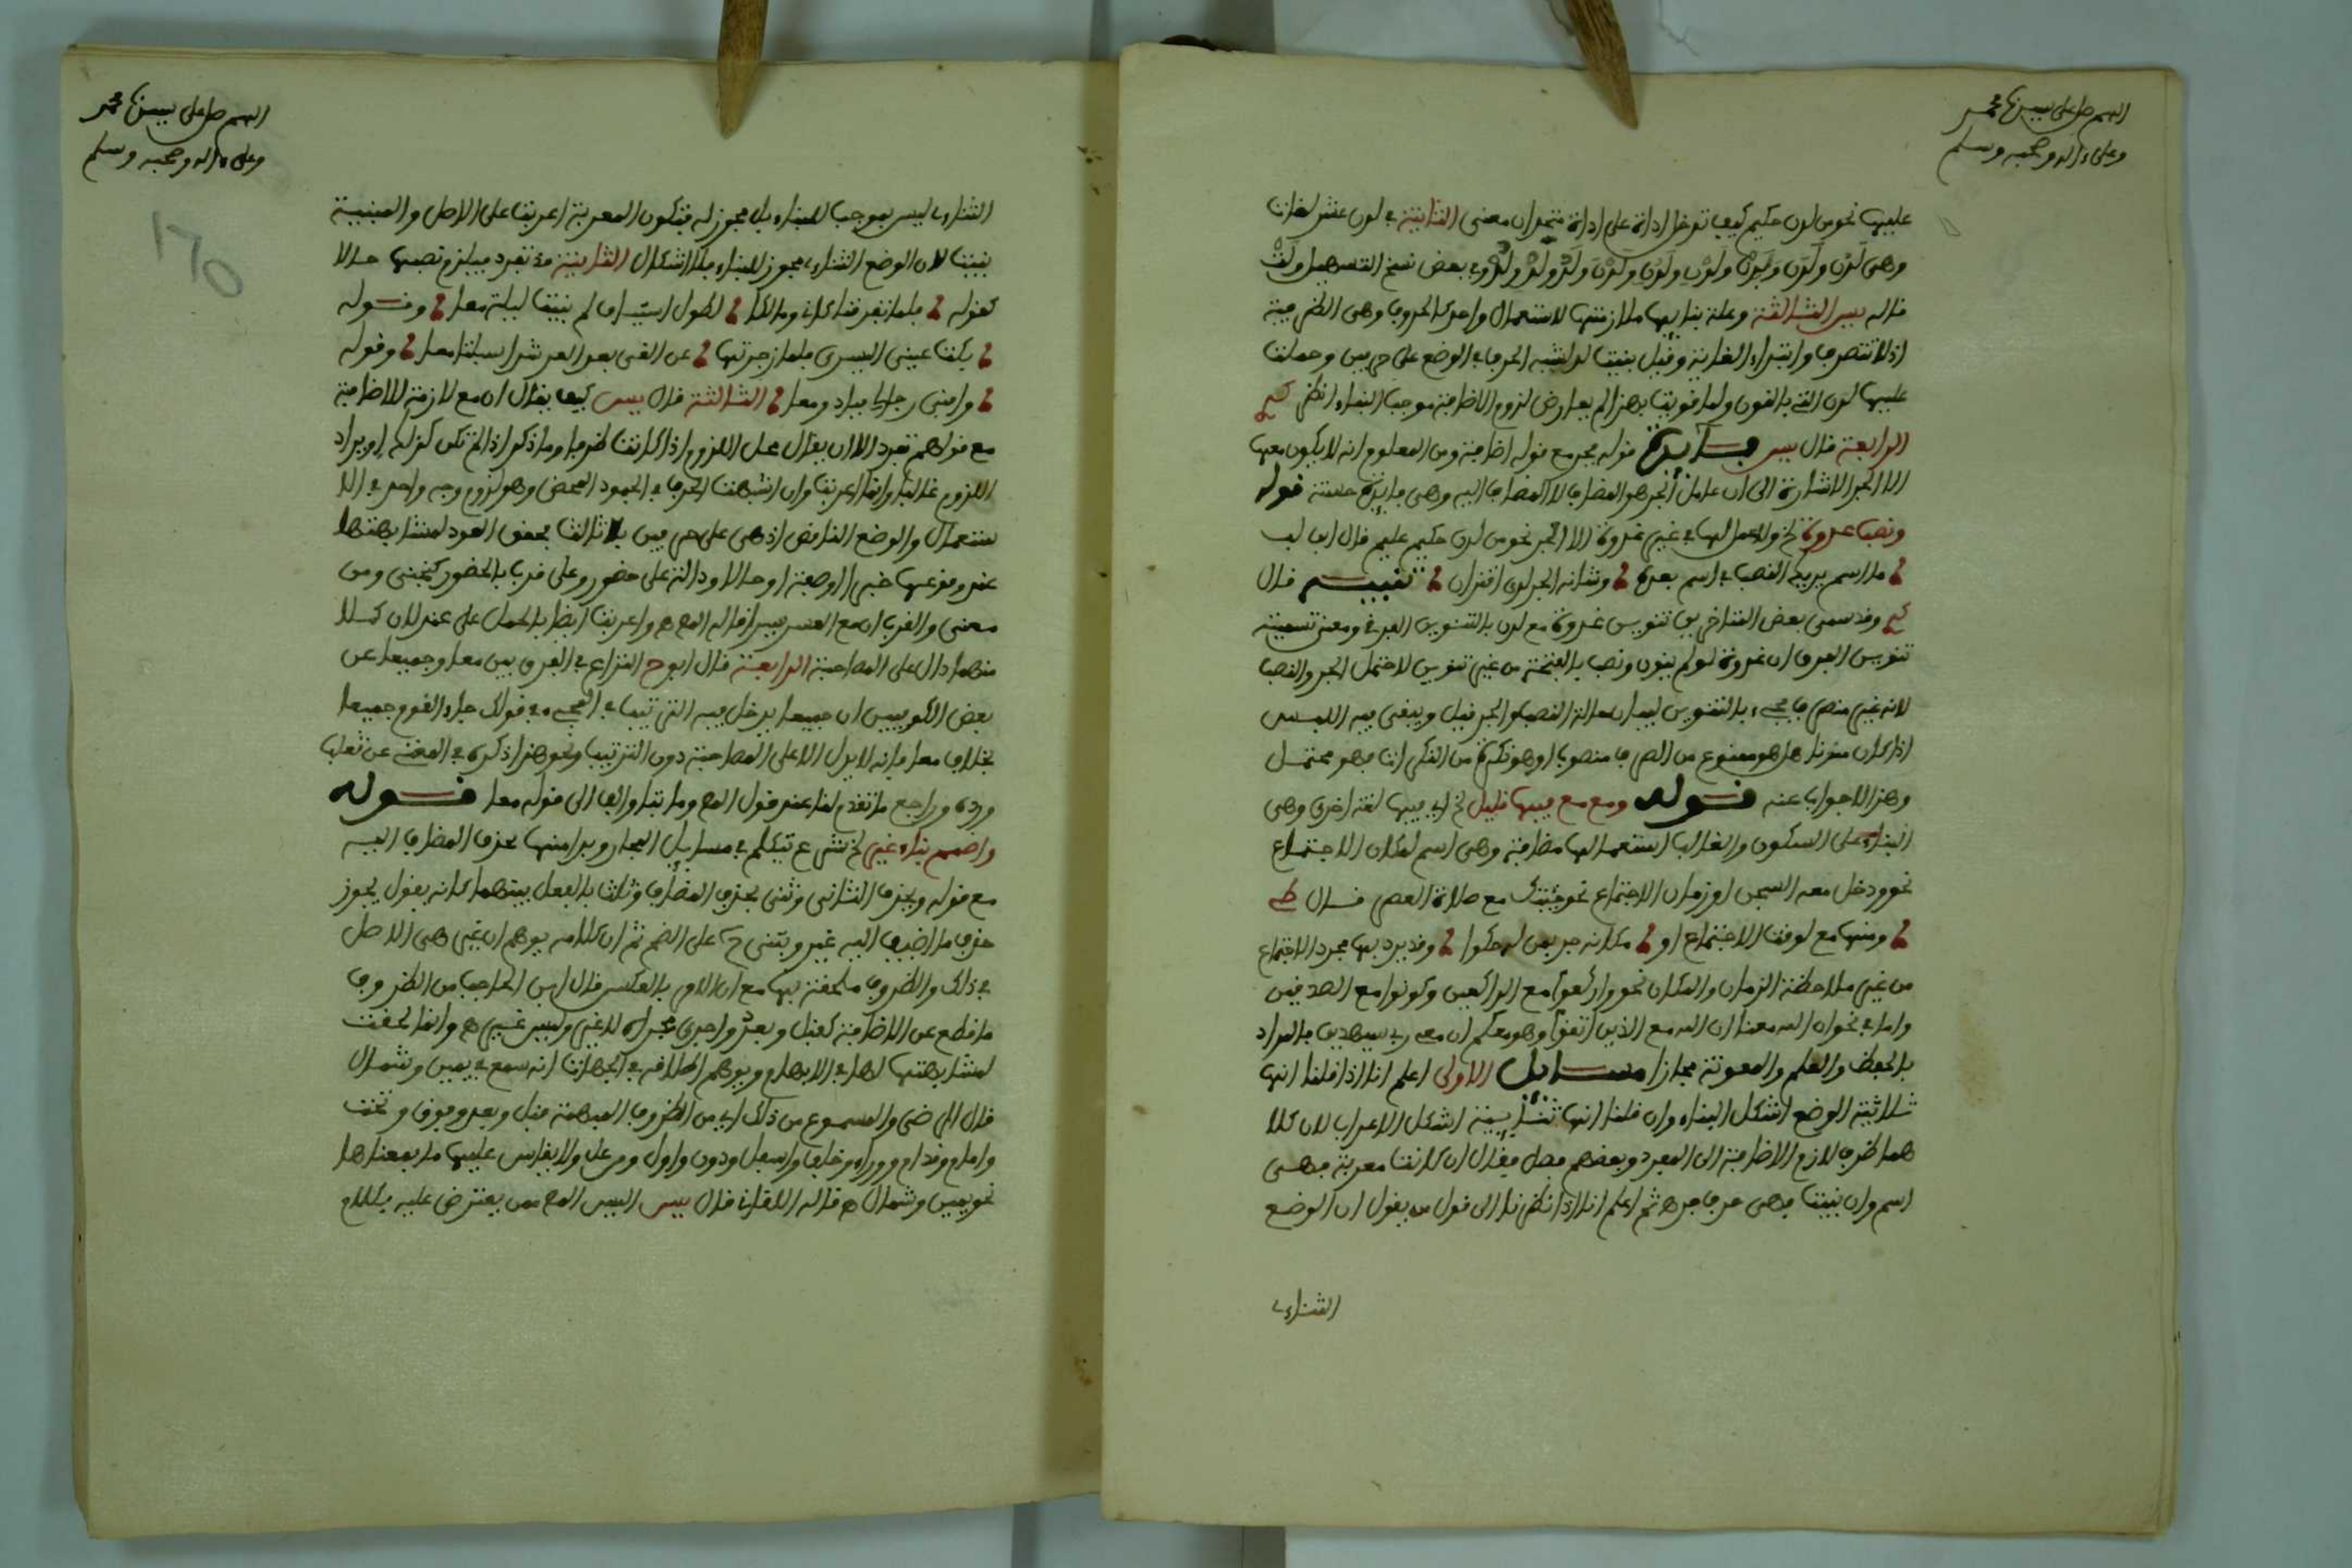 اللهم صل على سيدنا محمد
وعلى ءاله وصحبه وسلم
عليها نحو من لدن حكيم كيف تدخل اداة على اداة بتحدان معنى الثانية في لدن عشر لغات
وهى لَدُنْ ولَدَن ولَدِنْ ولُدْنِ ولَدْنِ ولَدْنَ ولَدْ ولُدْ ولَدُ وفي بعض نسخ التسهيل ولَتْ
قاله يس الثالثة وعلة بنايها ملازمتها لاستعمال واحد كالحروف وهى الظرفية
اذ لا تتصرف وابتداء الغاية وقيل بنيت لدا لشبه الحرف في الوضع على حرفين وحملت
عليها لدن التى بالنون ولما قويت بهذا لم يعارض لزوم الاضافة موجب البناء انظر
الرابعة قال يس فايدة قوله فجر مع قوله اضافة ومن المعلوم انه لا يكون معها
الا الجر الاشارة الى ان عامل الجر هو المضاف لا المضاف اليه وهى فايدة حسنة قوله
ونصب غدوة الخ ولا عمل لها في غير غدوة الا الجر نحو من لدن حكيم عليم قال ابن لب
ما اسم يريك النصب في اسم بعده وشانه الجر لدى اقتران تنبيه قال
وقد سمى بعض المتاخرين تنوين غدوة مع لدن بالتنوين الفرقي ومعنى تسميته
تنوين الفرق ان غدوة لو لم ينون ونصب بالفتحة من غير تنوين لاحتمل الجر والنصب
لانه غير منصرف فجيء بالتنوين لبيان حالة النصب والجر قيل ويبقى فيه اللبس
اذا كان منونا هل هو ممنوع من الصرف منصوبا او هو نكرة من النكرات فهو محتمل
وهذا لا جواب عنه قوله ومع مع فيها قليل الخ اى فيها لغة اخرى وهى
البناء على السكون والغالب استعمالها مضافة وهى اسم لمكان الاجتماع
نحو ودخل معه السجن او زمان الاجتماع نحو جئتك مع صلاة العصر قال
ومنها مع لوقت الاجتماع او مكانه جر بمن له حكوا وقد يرد بها مجرد الاجتماع
من غير ملاحظة الزمان والمكان نحو واركعوا مع الراكعين وكونوا مع الصدقين
واما في نحو ان الله معنا ان الله مع الذين اتقوا وهو معكم ان معى ربى سيهدين فالمراد
بالحفظ والعلم والمعونة مجازا مسايل الاولى اعلم انا اذا قلنا انها
ثلاثية الوضع اشكل البناء وان قلنا انها ثنايية اشكل الاعراب لان كلا
هما ظرف لازم الاضافة الى المفرد وبعضهم فصل فقال ان كانت معربة فهى
اسم وان بنيت فهى حرف جر ثم اعلم انا اذا نظرنا الى قول من يقول ان الوضع
الثناءى
اللهم صل على سيدنا محمد
وعلى ءاله وصحبه وسلم
170
الثناءى ليس بموجب للبناء بل مجوز له فتكون المعربة اعربت على الاصل والمبنية
بنيت لان الوضع الثناءى مجوز للبناء فلا اشكال الثانية قد تفرد فيلزم نصبها حالا
كقوله فلما تفرقنا كانى ومالكا لطول اشتياق لم نبت ليلة معا وقوله
بكت عينى اليسرى فلما زجرتها عن الغى بعد الرشد اسبلتا معا وقوله
وافنى رجالى فبادوا معا الثالثة قال يس كيف يقال ان مع لازمة للاضافة
مع قولهم تفرد الا ان يقال محل اللزوم اذا كانت ظرفا وما ذكر اذا لم تكن كذلك او يراد
اللزوم غالبا وانما اعربت وان اشبهت الحرف في الجمود المحض وهو لزوم وجه واحد في الا
ستعمال والوضع الناقص اذ هى على حرفين بلا ثالث محقق العود لمشابهتها
عند وقوعها خبرا او صفة او حالا ودالة على حضور وعلى قرب فالحضور كنجنى ومن
معنى والقرب ان مع العسر يسرا قاله المص واعربت ايضا بالحمل على عند لان كلا
منهما دال على المصاحبة الرابعة قال ابو ح النزاع في الفرق بين معا وجميعا عن
بعض الكوفيين ان جميعا يدخل فيه الترتيب في المجىء في قولك جاء القوم جميعا
بخلاف معا فانه لا يدل الا على المصاحبة دون الترتيب ونحو هذا ذكره في المغنى عن ثعلب
ورده وراجع ما تقدم لنا عند قول المص وما بتا والف الى قوله معا قوله
واضمم بناء غيرا الخ شرع يتكلم في مسايل الحذف وبدا منها بحذف المضاف اليه
مع قوله ويحذف الثانى وثنى بحذف المضاف وثلث بالفصل بينهما كانه يقول يجوز
حذف ما اضيف اليه غير ويبنى ح على الضم ثم ان كلامه يوهم ان غير هى الاصل
في ذلك والظروف ملحقة بها مع ان الامر بالعكس قال ابن الحاجب من الظروف
ما قطع عن الاضافة كقبل وبعد واجرى مجراه لا غير وليس غير ه وانما لحقت
لمشابهتها لها في الابهام ويوهم اطلاقه في الجهات انه سمع في يمين وشمال
قال الرضى والمسموع من ذلك اى من الظروف المبهمة قبل وبعد وفوق وتحت
وامام وقدام ووراء وخلف واسفل ودون واول ومن عل ولا يقاس عليها ما بمعناها
نحو يمين وشمال ه قاله اللقانى قال يس اليس المص ممن يعترض عليه بكلام